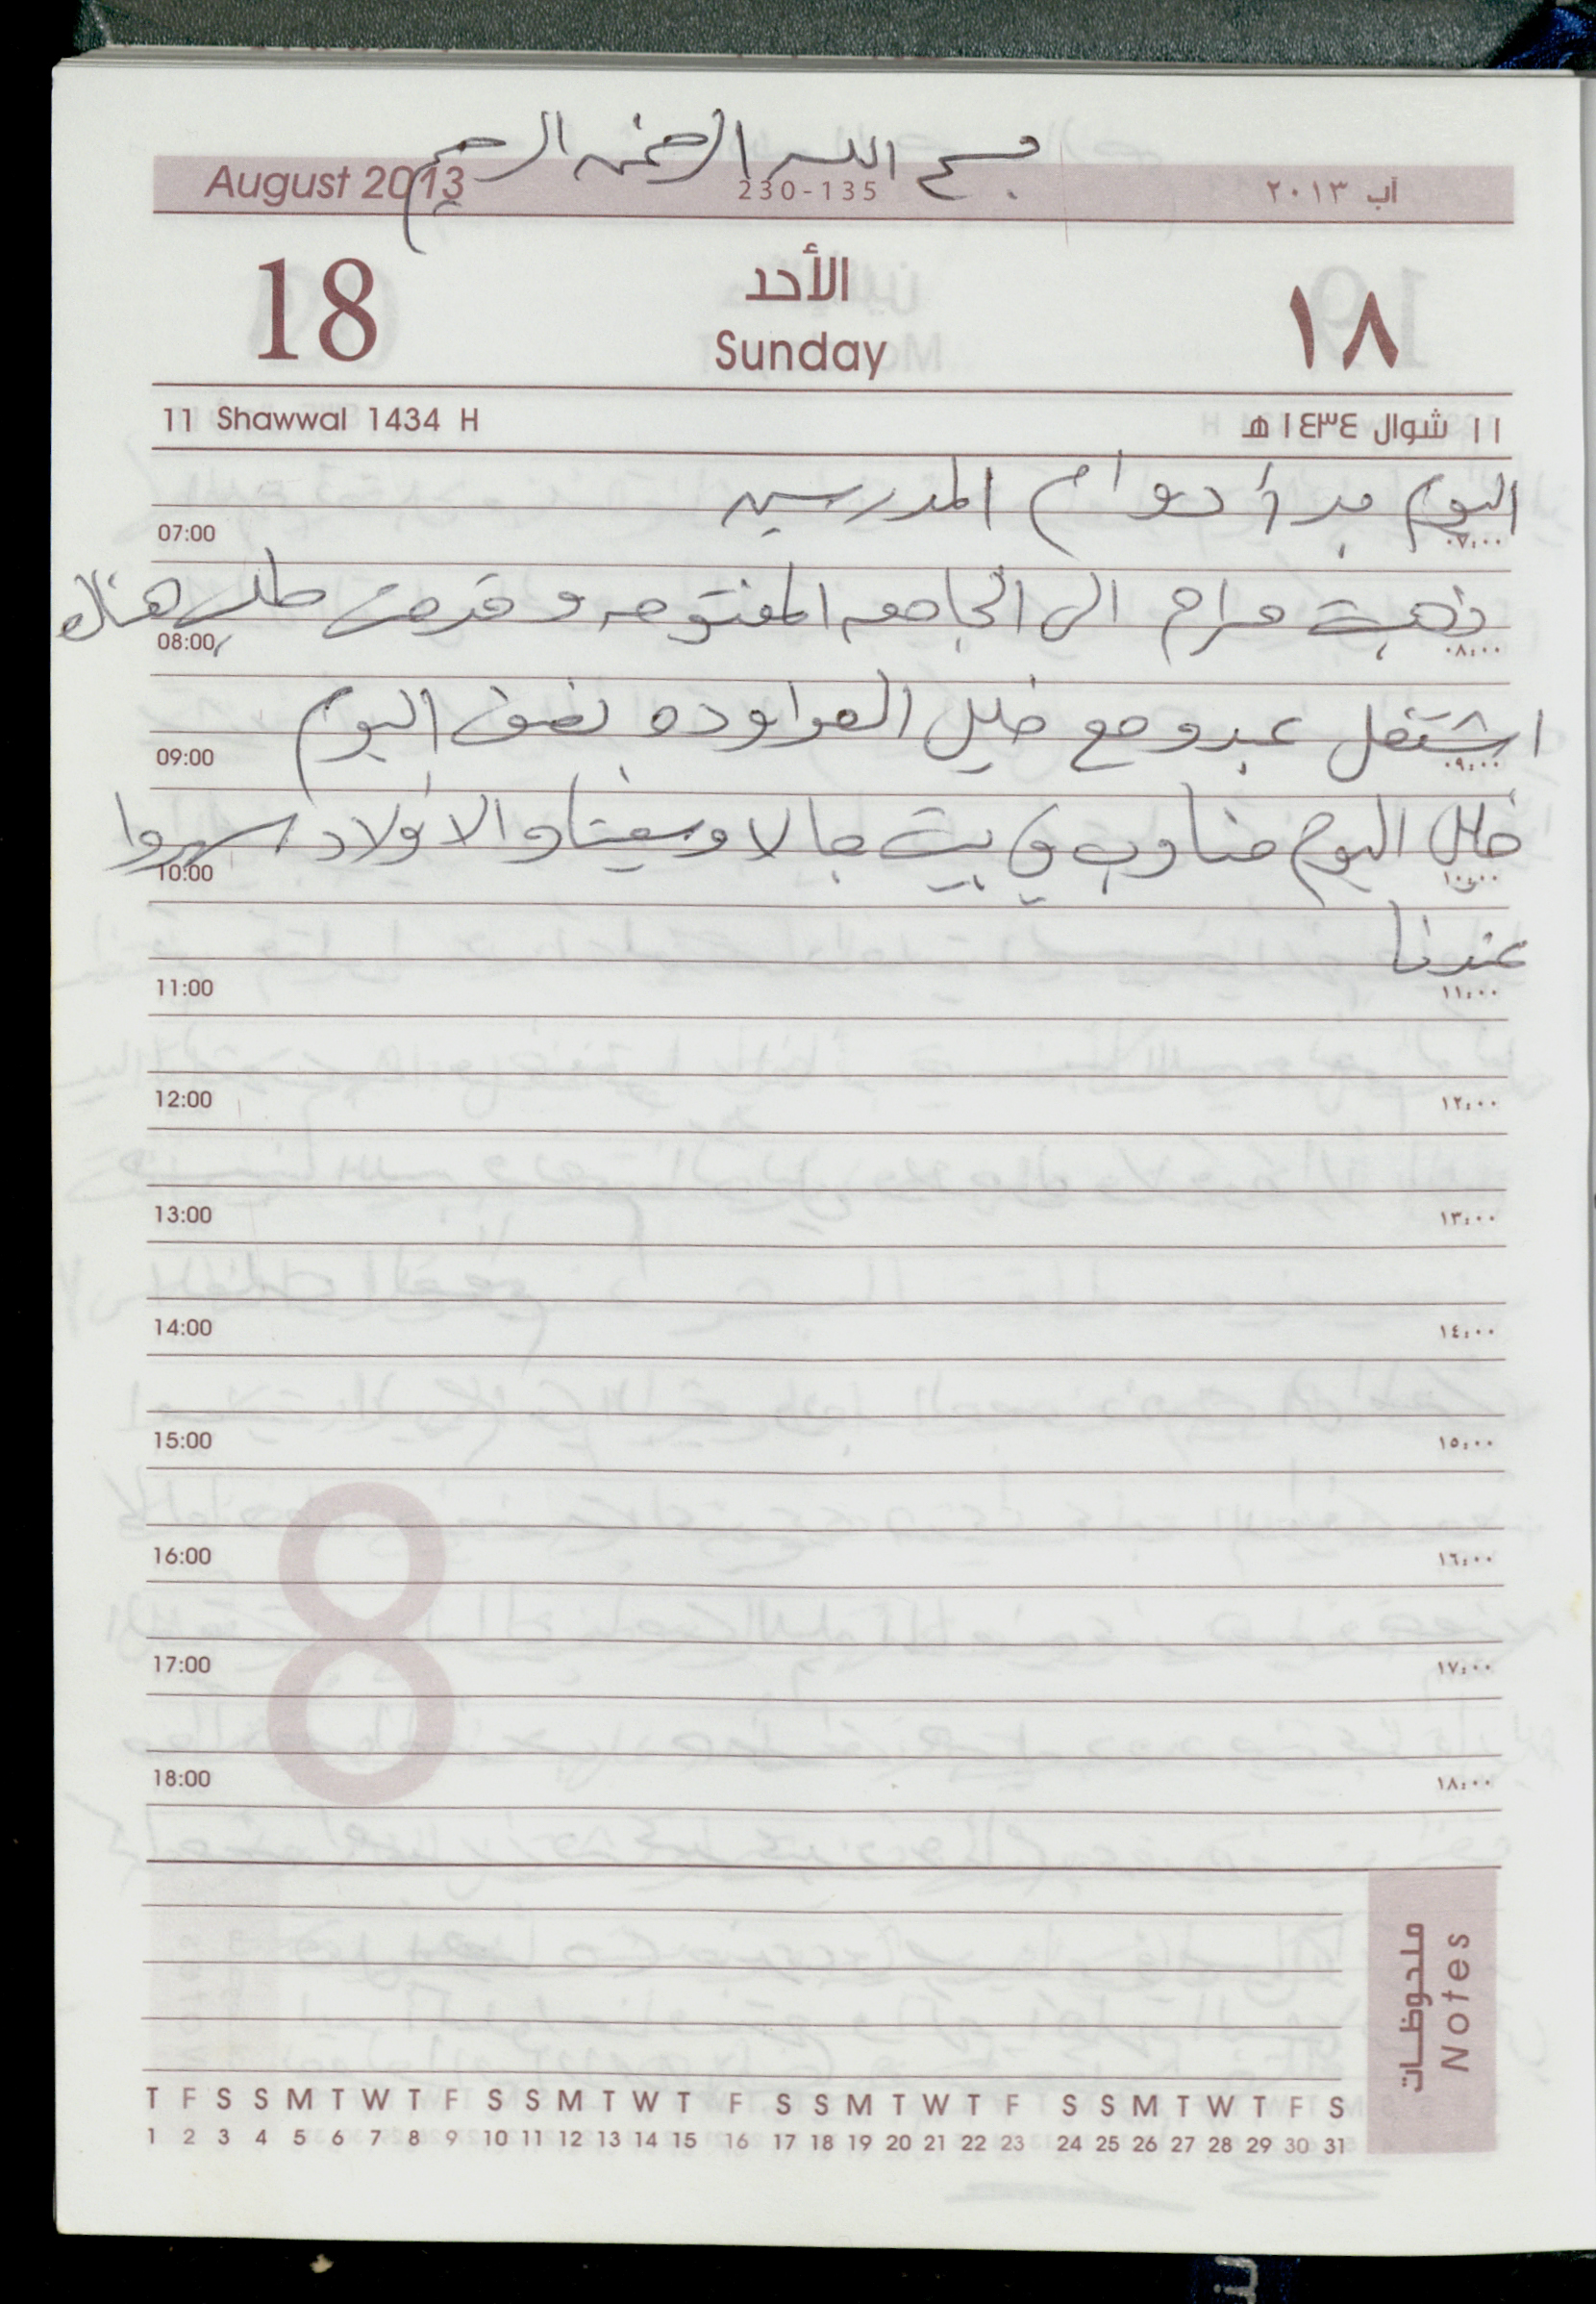 بسم الله الرحمن الرحيم
August 2013 230-135 آب ٢٠١٣
18 الأحد ١٨
Sunday
11 Shawwal 1434 H ١١ شوال ١٤٣٤ هـ
اليوم بدأ دوام المدرسين
07:00 ٠٧:٠٠
ذهبت مرام الى الجامعه المفتوحه وقدمت طلب هناك
08:00 ٠٨:٠٠
اشتغل عبد ومع خليل العواوده نصف اليوم
09:00 ٠٩:٠٠
خليل اليوم مناوب في بيت جالا وسفيتا والاولاد سهروا
10:00 ١٠:٠٠
عندنا
11:00 ١١:٠٠
12:00 ١٢:٠٠
13:00 ١٣:٠٠
14:00 ١٤:٠٠
15:00 ١٥:٠٠
16:00 ١٦:٠٠
17:00 ١٧:٠٠
18:00 ١٨:٠٠
8
ملحوظات
Notes
T F S S M T W T F S S M T W T F S S M T W T F S S M T W T F S
1 2 3 4 5 6 7 8 9 10 11 12 13 14 15 16 17 18 19 20 21 22 23 24 25 26 27 28 29 30 31